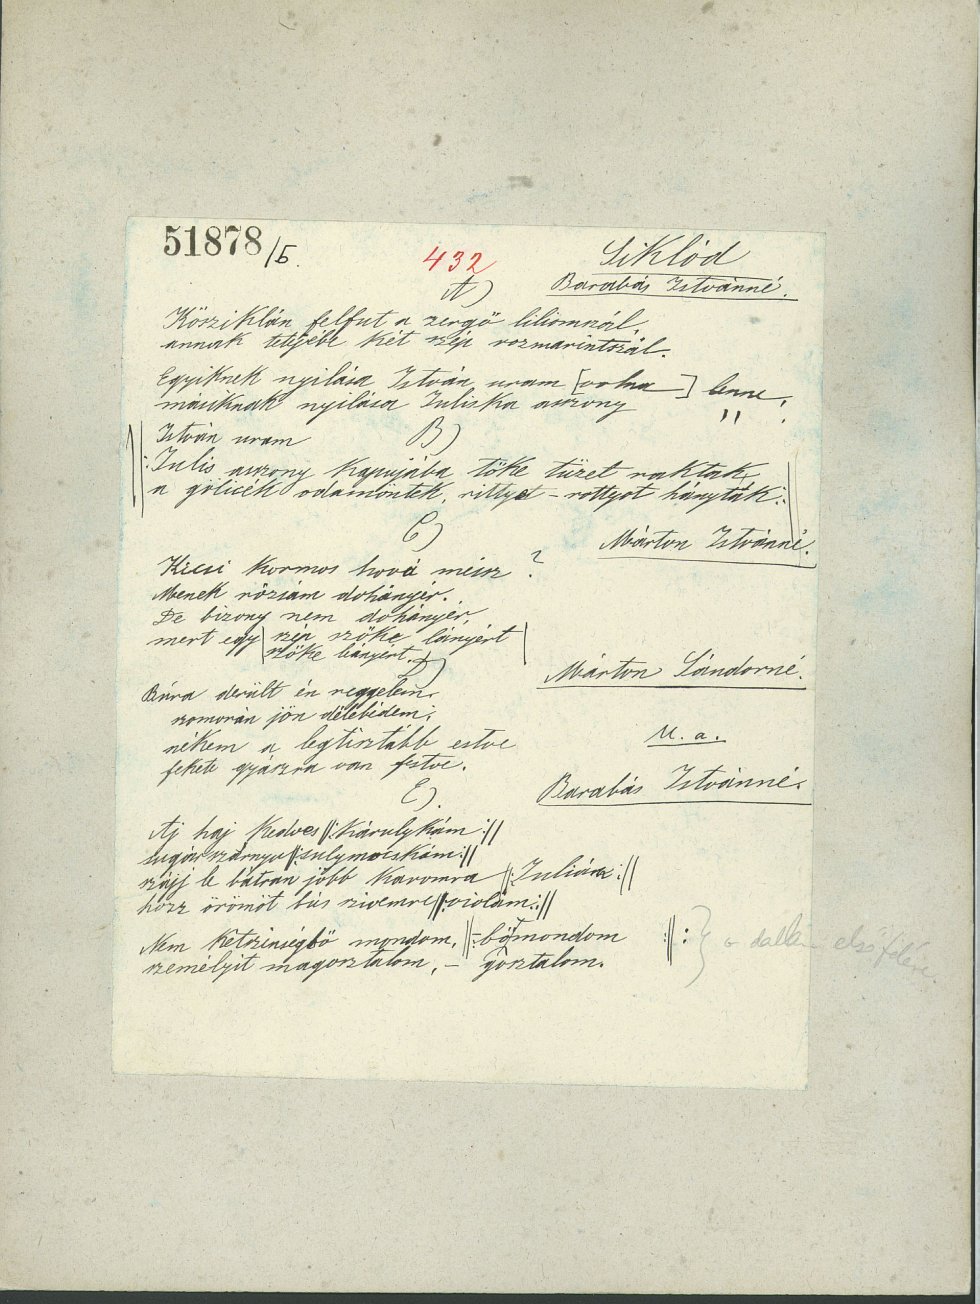 51878/b.
432
Siklód
A)
Barabás Istvánné.
Kősziklán felfut a zergő liliomszál,
annak tetejébe két szép rozmarintszál.
Egyiknek nyilása István uram [volna] lenne,
másiknak nyilása Juliska asszony " :
István uram
B)
||: Julis asszony kapujába tőke tüzet raktak,
a gölicék odamöntek, rittyet-rottyot hánytak :||
C)
Márton Istvánné.
Kicsi kormos hová mész ?
Menek rózsám dohányér.
De bizony nem dohányér,
mert egy | szép szőke lányért |
szőke lányért.
D)
Márton Sándorné.
Búra derült én reggelem,
szomorán jön délebédem,
nékem a legtisztább estve
U. a.
fekete gyászra van festve.
E).
Barabás Istvánné.
Aj haj kedves ||: károlykám :||
sugár szárnyu ||: sulymocskám :||
szájj le bátran jobb karomra ||: Juliána :||
hozz örömöt bús szivemre ||: violám :||
Nem kétszinségbő mondom, ||: bőmondom :||
személyit magosztalom, – gosztalom.
a dallam első felére